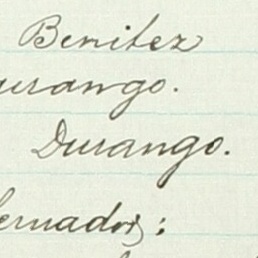 Benitez
urango.
Durango.
ernador: